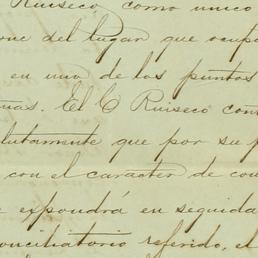 Ruiseco como unico
one del lugar que ocup
en uno de los puntos
nas. El C Ruiseco con
lutamente que por su p
con el caracter de con
e expondrá en seguida
onciliatorio referido, el